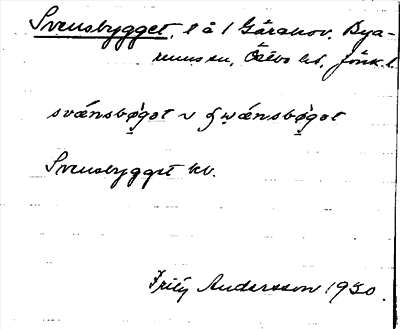 Svensbygget, l å l Gårahov, Bya-
rums sn, Östbo hd, Jönk. l.
svánsbøgət v ʃwánsbøgət
Svensbygget kv.
Frity Andersson 1930.